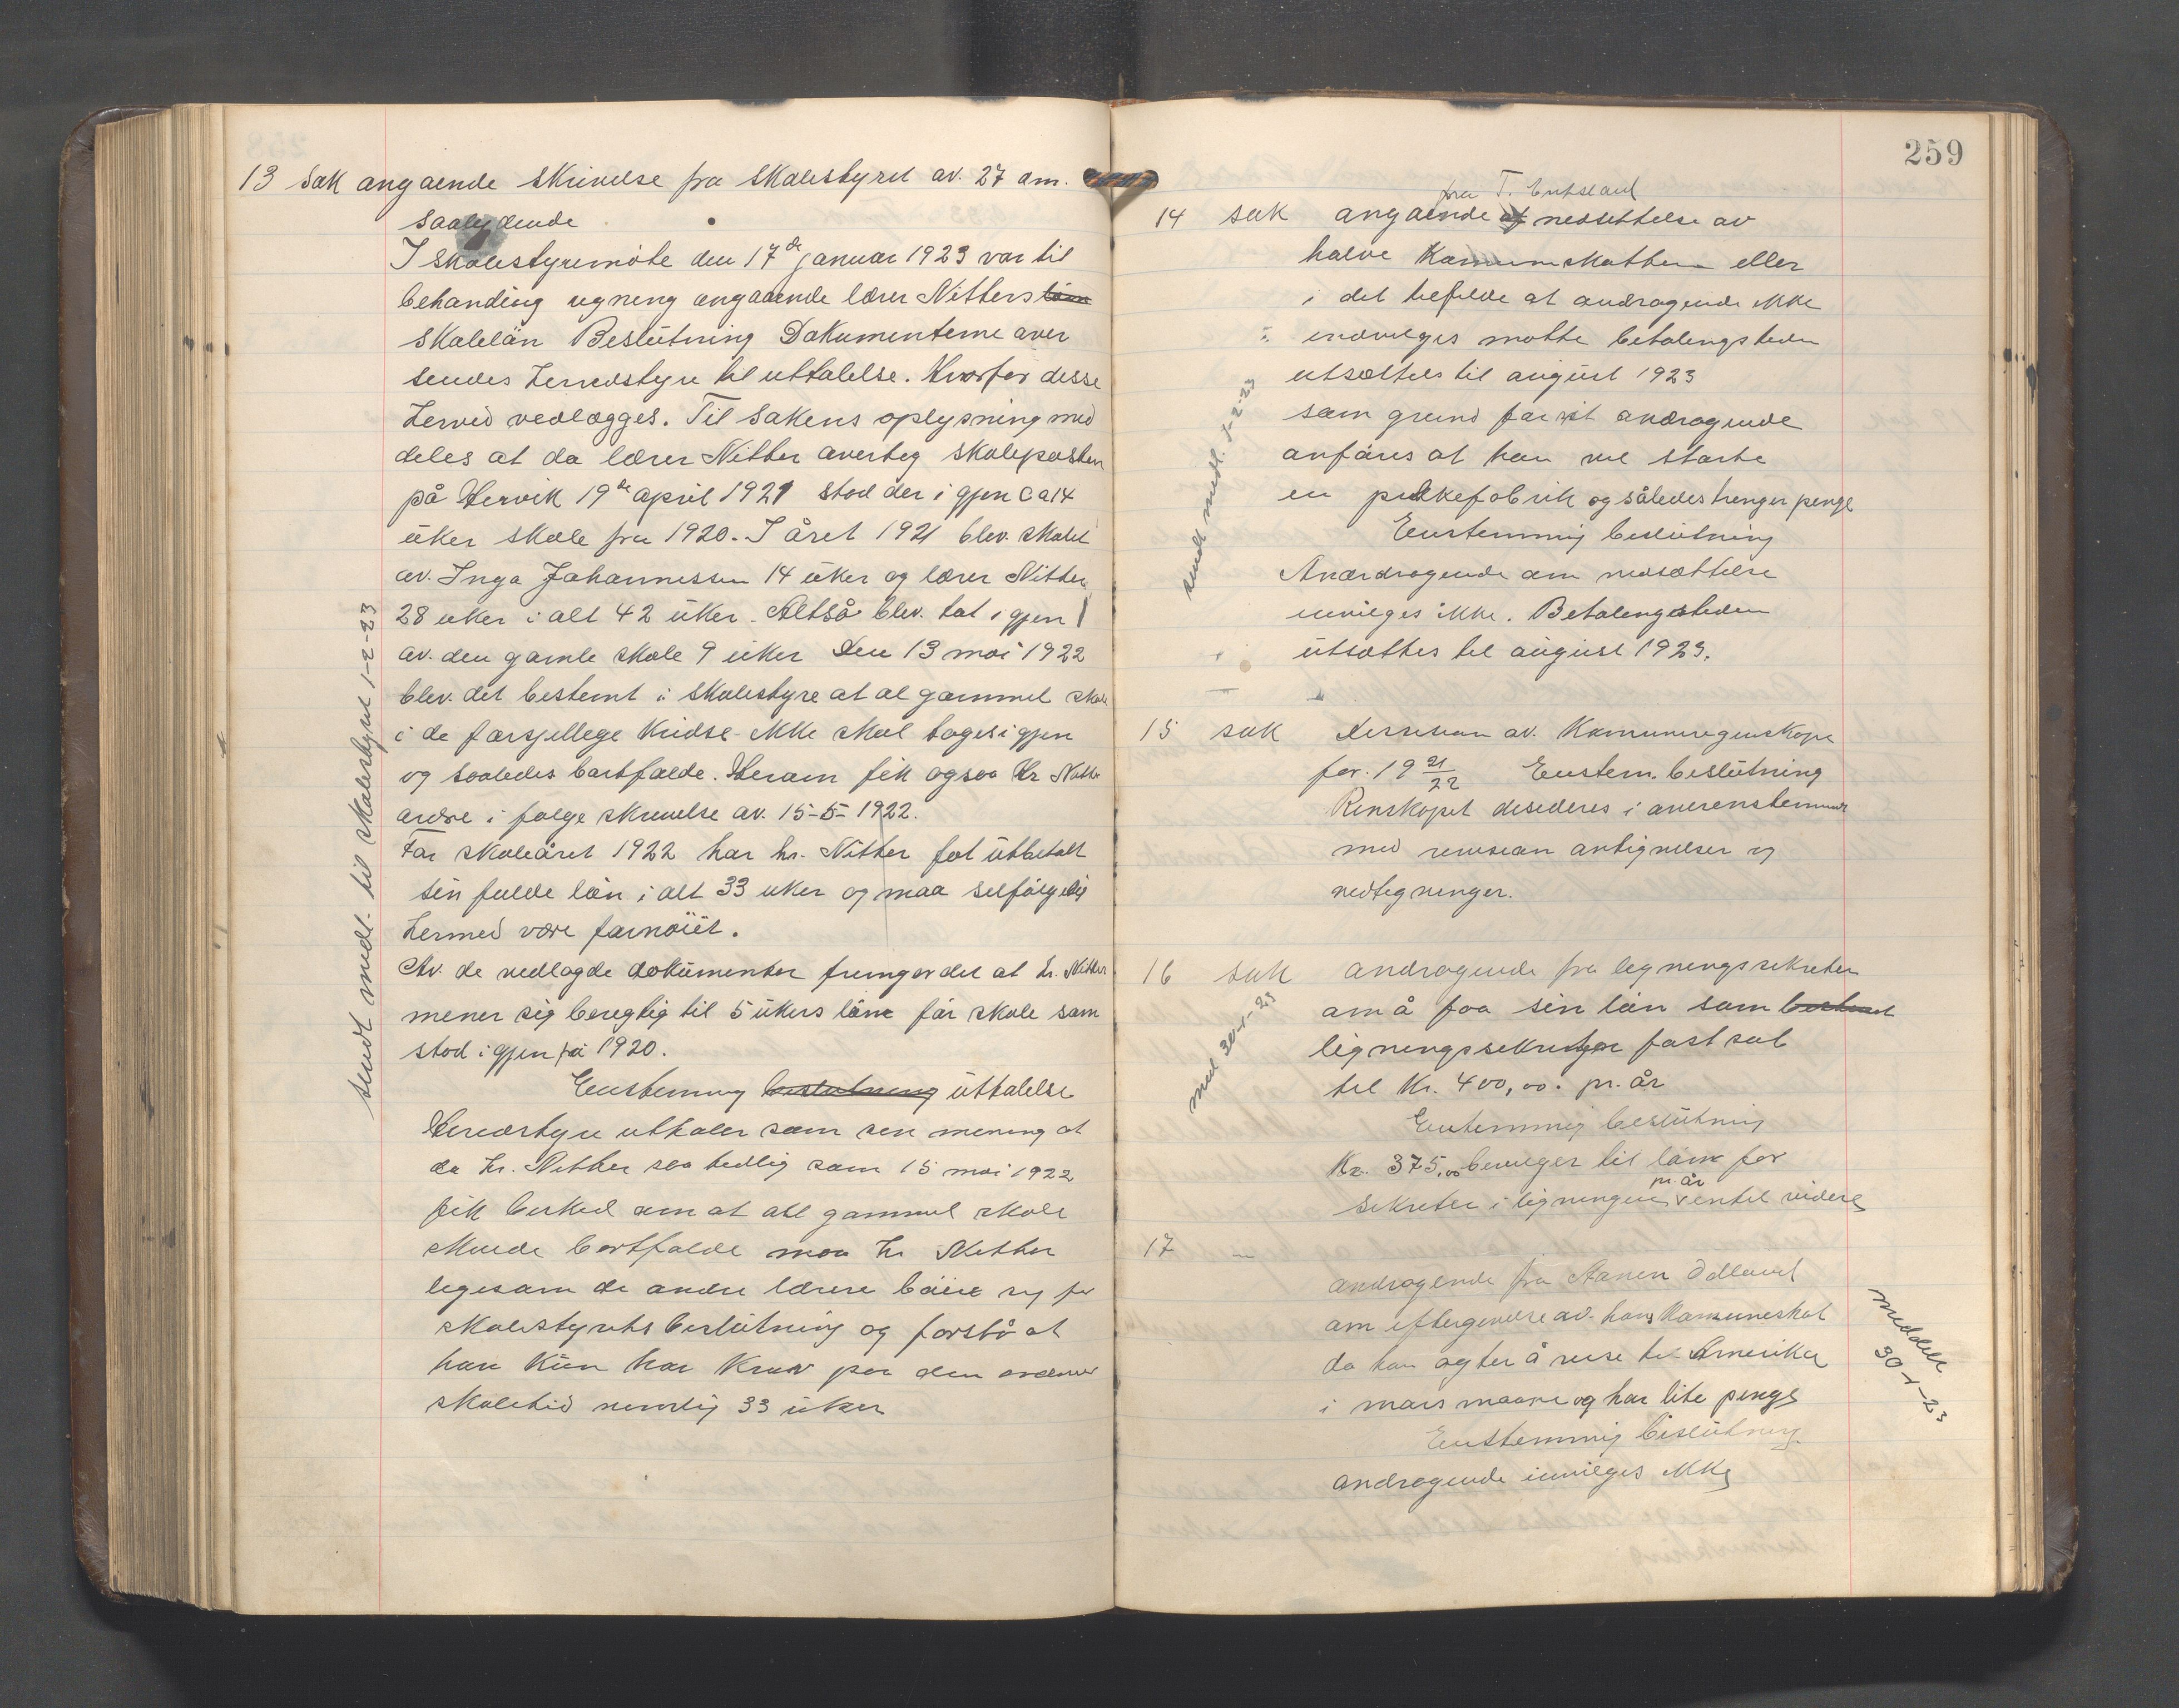 13 Sak angaende skrivelse fra skolestyret av. 27 am.
saalydende
I skolestyremöte den 17de januar 1923 var til
behanding regning angaaende lærer Nitters lön
skolelön Beslutning Dokumenterne over
sendes herredstyre til uttalelse. Hvorfor disse
herved vedlægges. Til sakens oplysning med
deles at da lærer Nitter overtog skoleposten
på Hervik 19de april 1921 stod der i gjen ca 14
uker skole fra 1920. I året 1921 blev. skolet
av. Inga Johannessen 14 uker og lærer Nitter
28 uker i alt 42 uker. Altså blev. tat i gjen
av. den gamle skole 9 uker Den 13 mai 1922
blev. det bestemt i skolestyre at al gammel skole
i de forsjellege kridse ikke skal tages i gjen
og saaledes bortfalde. Herom fik ogsaa Hr Nitter
ordre i følge skrivelse av. 15-5-1922.
For skoleåret 1922 har hr. Nitter fot utbetalt
sin fulde lön i alt 33 uker og maa selfölgelig
hermed være fornöiet.
Av. de vedlagde dokumenter fremgår det at hr. Nitter
mener sig beregtig til 5 ukers lönn for skole som
stod i gjen fra 1920.
Enstemmig beslutning uttalelse
Herredstyre uttaler som sen mening at
da hr. Nitter saa tidlig som 15 mai 1922
fik besked om at all gammel skole
skulde bortfalde maa hr Nitter
legesom de andre lærere böie sig for
skolestyrets beslutning og forstå at
han kun har krav paa den ordenær
skoletid nemlig 33 uker
sendt medl. til skolestyret 1-2-23
259
fra T.
14 sak angaende af nedsettelse av
halve Komunskatten eller
i det tilfelde at andragende ikke
indvilges motte betalingstiden
utsættes til august 1923
som grund for sit andragende
anföres at han vil starte
en pølkefabrik og således trenger penge
Enstemmig beslutning
Anærdragende om nedsættelse
innvilges ikke. Betalingstiden
utsættes til august 1923.
sendt medl. 1-2-23
15 sak Desisjon av. Komunregenskape
for. 19 21/22 Enstem. beslutning
Renskapet desideres i overenstemmelse
med revision antignelser og
nedtegninger.
16 sak andragende fra legningssekretær
om å faa sin lön som bestemt
ligningssekretær fast sat
til Kr. 400,00. pr. år
Enstemmig beslutning
Kr. 375,00 beviiges til lönn for
pr. år
sekretær i ligningen v entil videre
med 30-1-23
17 — andragende fra Aanen Ødland
om eftergivelse av. hans Komuneskat
da han agter å reise til Amerika
i mars maane og har lite penge
Enstemmig beslutning.
andragende innvilges ikke
meddelt
30-1-23